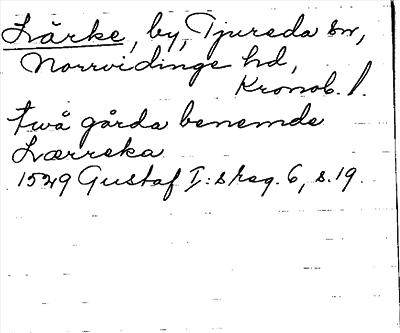 Lärke, by, Tjureda sn,
Norrvidinge hd,
Kronob. l.
två gårda benemde
Lærreka
1529 Gustaf I:s reg. 6, s. 19.